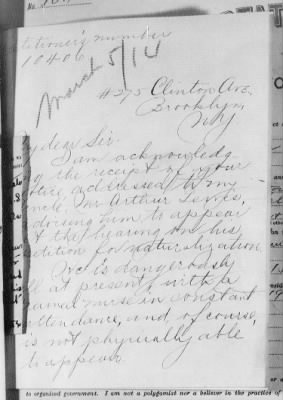 No.
titioner's number
10406
March 5/14
#275 Clinton Ave.
Brooklyn,
N.Y.
y dear Sir.
I am acknowledg
the receipt of your
addressed to my
uncle, Mr Arthur
dvising him to appear
t the hearing on his
etition for naturalization.
He is dangerously
ll at present, with a
rained nurse in constant
ttendance, and of course,
is not physically able
to appear.
to organized government. I am not a polygamist nor a believer in the practice of